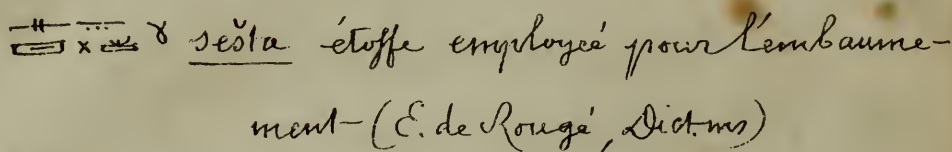 sešta étoffe employée pour l'embaume-
ment - (E. de Rougé, Dict. ms)